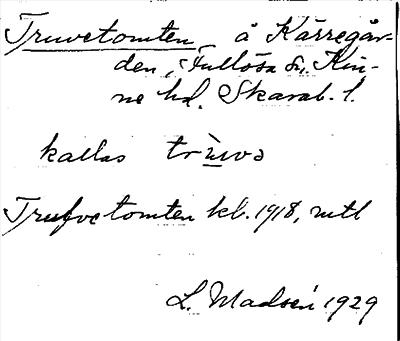 Truvetomten å Kärregår-
den, Fullösa sn. Kin-
ne hd. Skarab. l.
kallas trùvə
Trufvetomten kb. 1918, mtl
L. Madsén 1929